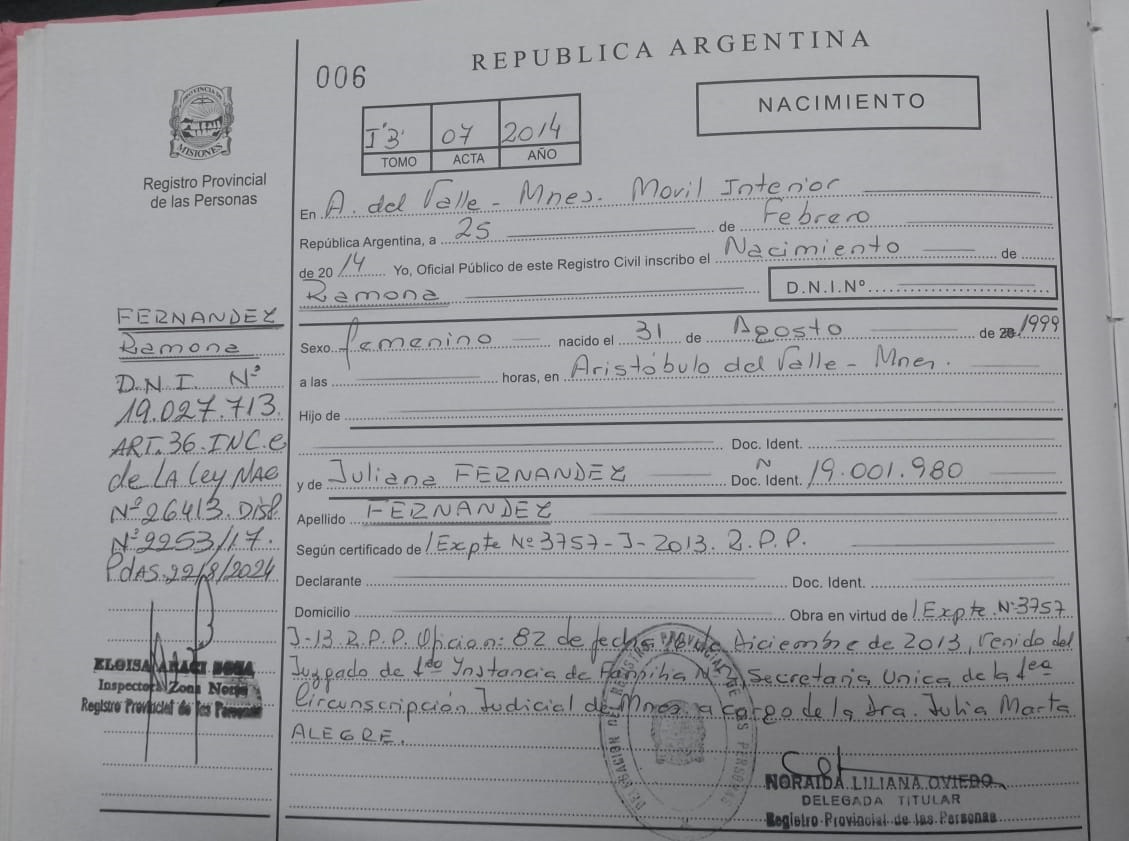 REPUBLICA ARGENTINA
006
NACIMIENTO
I°B' 07 2014
TOMO ACTA AÑO
PROVINCIA DE
MISIONES
Registro Provincial
de las Personas
En A. del Valle - Mnes. Movil Interior
República Argentina, a 25 de Febrero
de 2014 Yo, Oficial Público de este Registro Civil inscribo el Nacimiento de
Ramona D.N.I.Nº
Sexo femenino nacido el 31 de Agosto de 20 1999
a las horas, en Aristóbulo del Valle - Mnes.
Hijo de
Doc. Ident.
y de Juliana FERNANDEZ Doc. Ident. N 19.001.980
Apellido FERNANDEZ
Según certificado de /Expte Nº 3757-J-2013. R.P.P.
Declarante Doc. Ident.
Domicilio Obra en virtud de /Expte. Nº3757
J-13 R.P.P. Oficio n: 82 de fecha de diciembre de 2013, venido del
Juzgado de 1ra Instancia de Familia Nº2 Secretaria Unica de la 1ea
Circunscripción Judicial de Mnes a cargo de la Dra. Julia Marta
ALEGRE.
FERNANDEZ
Ramona
D.N.I. Nº
19.027.713.
ART. 36. INC. e
de LA Ley NAC
Nº 26413. Disp.
Nº 2253/17.
PdAS. 22/8/2024
ELOISA
Inspectora Zona Norte
Registro Provincial de las Personas
NORAIDA LILIANA OVIEDO
DELEGADA TITULAR
Registro Provincial de las Personas